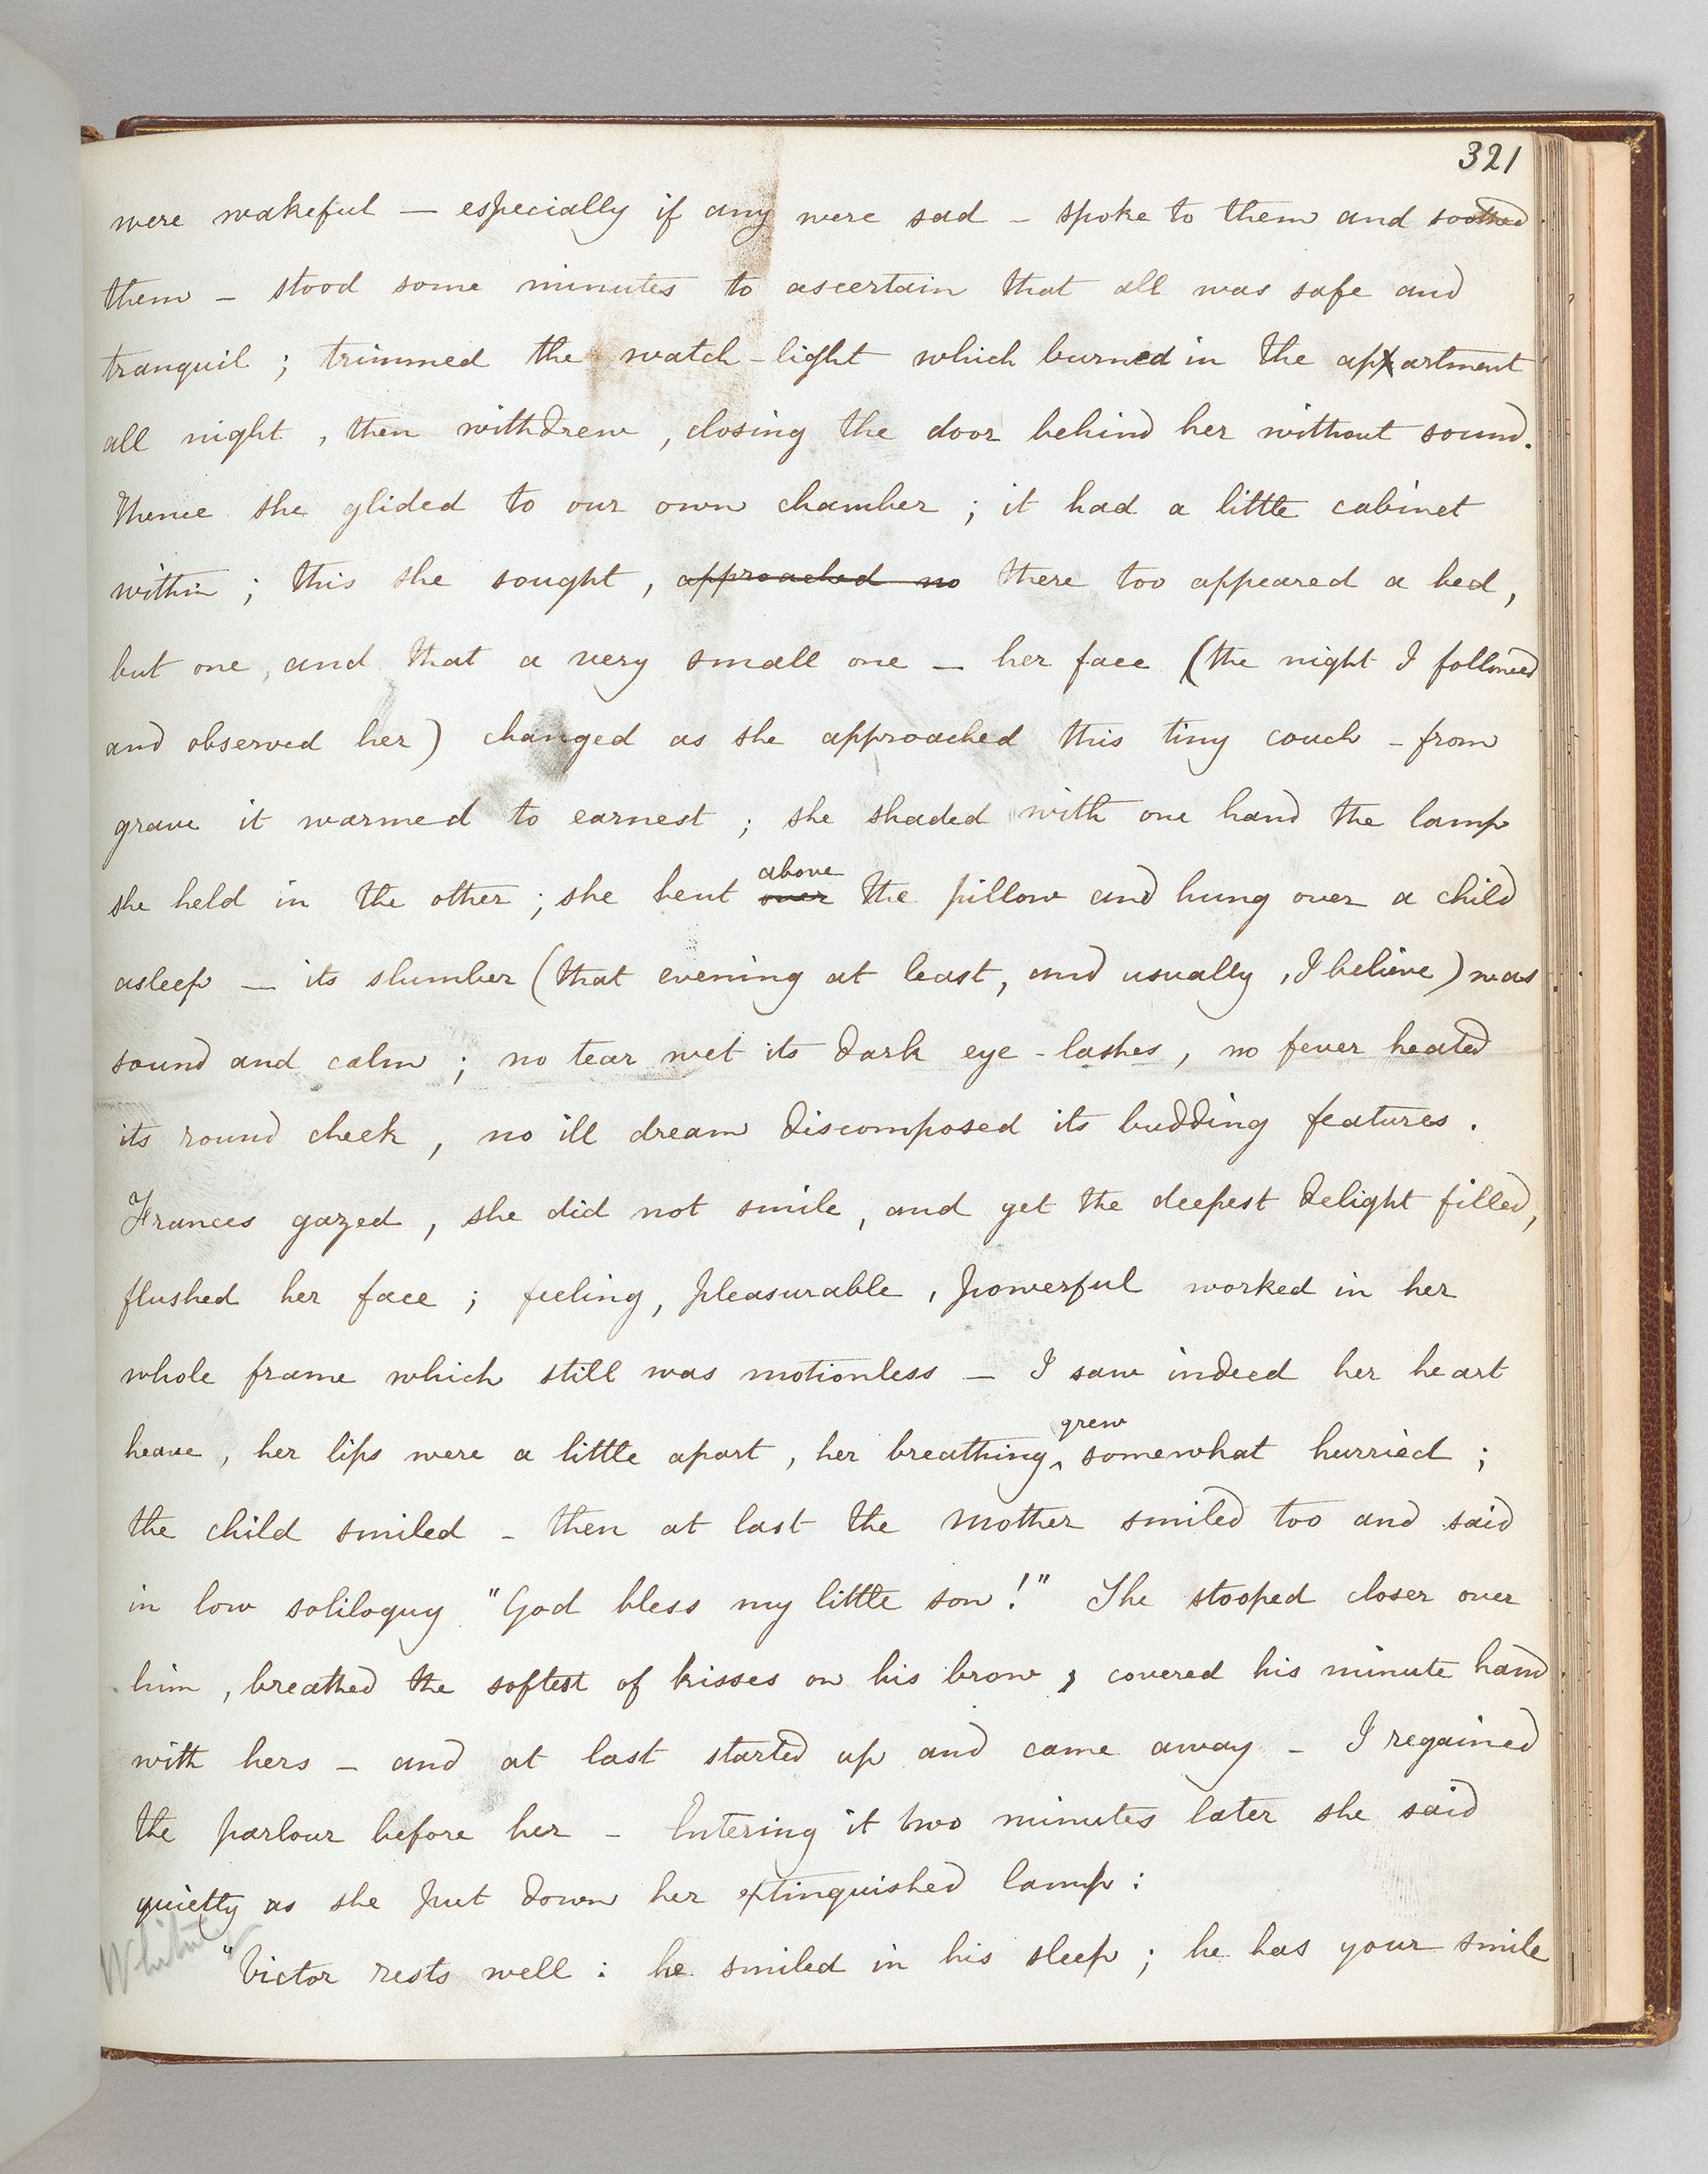 321
were wakeful — especially if any were sad - spoke to them and soothed
them - stood some minutes to ascertain that all was safe and
tranquil ; trimmed the watch-light which burned in the appartment
all night , then withdrew , closing the door behind her without sound.
Thence she glided to our own chamber ; it had a little cabinet
within ; this she sought , approached no there too appeared a bed,
but one , and that a very small one - her face (the night I followed
and observed her) changed as she approached this tiny couch - from
grave it warmed to earnest ; she shaded with one hand the lamp
above
she held in the other ; she bent over the pillow and hung over a child
asleep — its slumber (that evening at least, and usually , I believe) was
sound and calm ; no tear wet its dark eye-lashes, no fever heated
its round cheek , no ill dream discomposed its budding features .
Frances gazed , she did not smile , and yet the deepest delight filled,
flushed her face ; feeling, pleasurable , powerful worked in her
whole frame which still was motionless - I saw indeed her heart
grew
heave , her lips were a little apart , her breathing ^ somewhat hurried ;
the child smiled - then at last the mother smiled too and said
in low soliloquy "God bless my little son!" She stooped closer over
him , breathed the softest of kisses on his brow , covered his minute hand
with hers - and at last started up and came away - I regained
the parlour before her - Entering it two minutes later she said
quietly as she put down her extinguished lamp :
"Victor rests well : he smiled in his sleep ; he has your smile